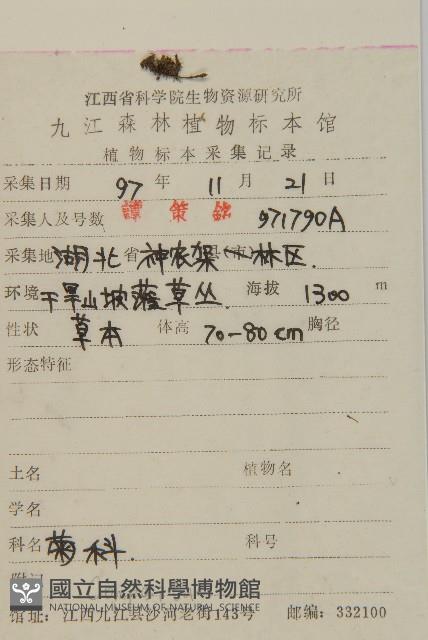 江西省科学院生物资源研究所
九江森林植物标本馆
植物标本采集记录
采集日期 97 年 11 月 21 日
采集人及号数 譚策銘 971790A
采集地 湖北省 神农架 县(市) 林区.
环境 干旱山坡灌草丛 海拔 1300 m
性状 草本 体高 70-80cm 胸径
形态特征
土名 植物名
学名
科名 菊科. 科号
國立自然科學博物館
NATIONAL MUSEUM OF NATURAL SCIENCE
馆址: 江西九江县沙河老街143号 邮编: 332100